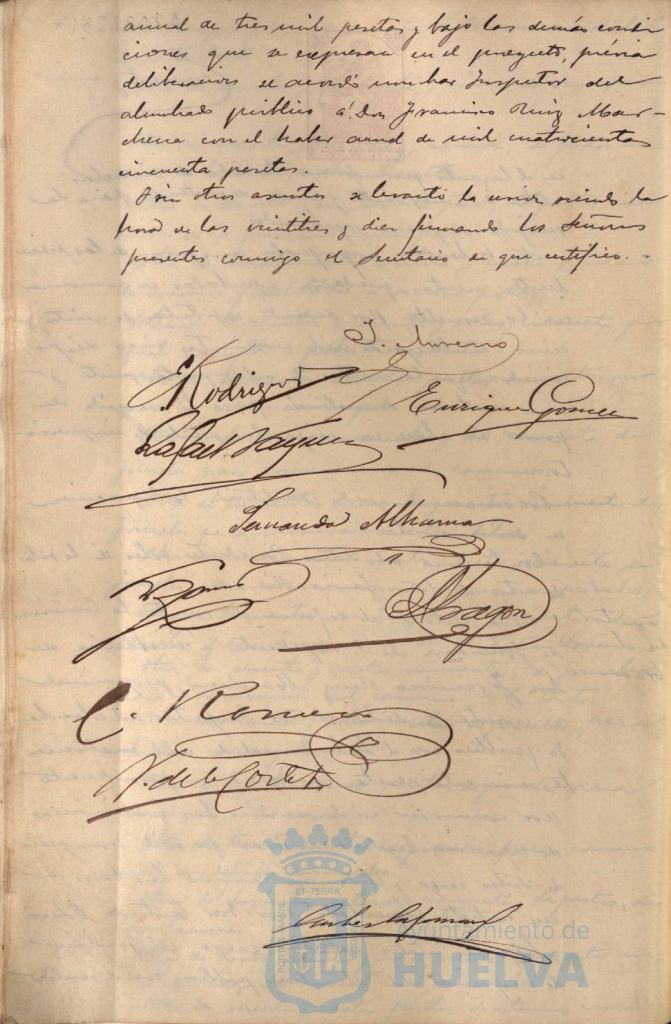 anual de tres mil pesetas y bajo las demás condi
ciones que se expresan en el proyecto, prévia
deliberacion se acordó nombrar Inspector del
alumbrado público á Don Francisco Ruiz Mar-
chena con el haber anual de mil cuatrocientas
cincuenta pesetas.
Y sin otros asuntos se levantó la sesion siendo la
hora de las veintitres y diez firmando los Señores
presentes conmigo el Secretario de que certifico.
J. Moreno
E. Rodriguez
Enrique Gomez
Rafael Vazquez
Fernando Alhama
Aragon
C. Romero
V. de la Corte
ET-TERRÆ
Ayuntamiento de
HUELVA